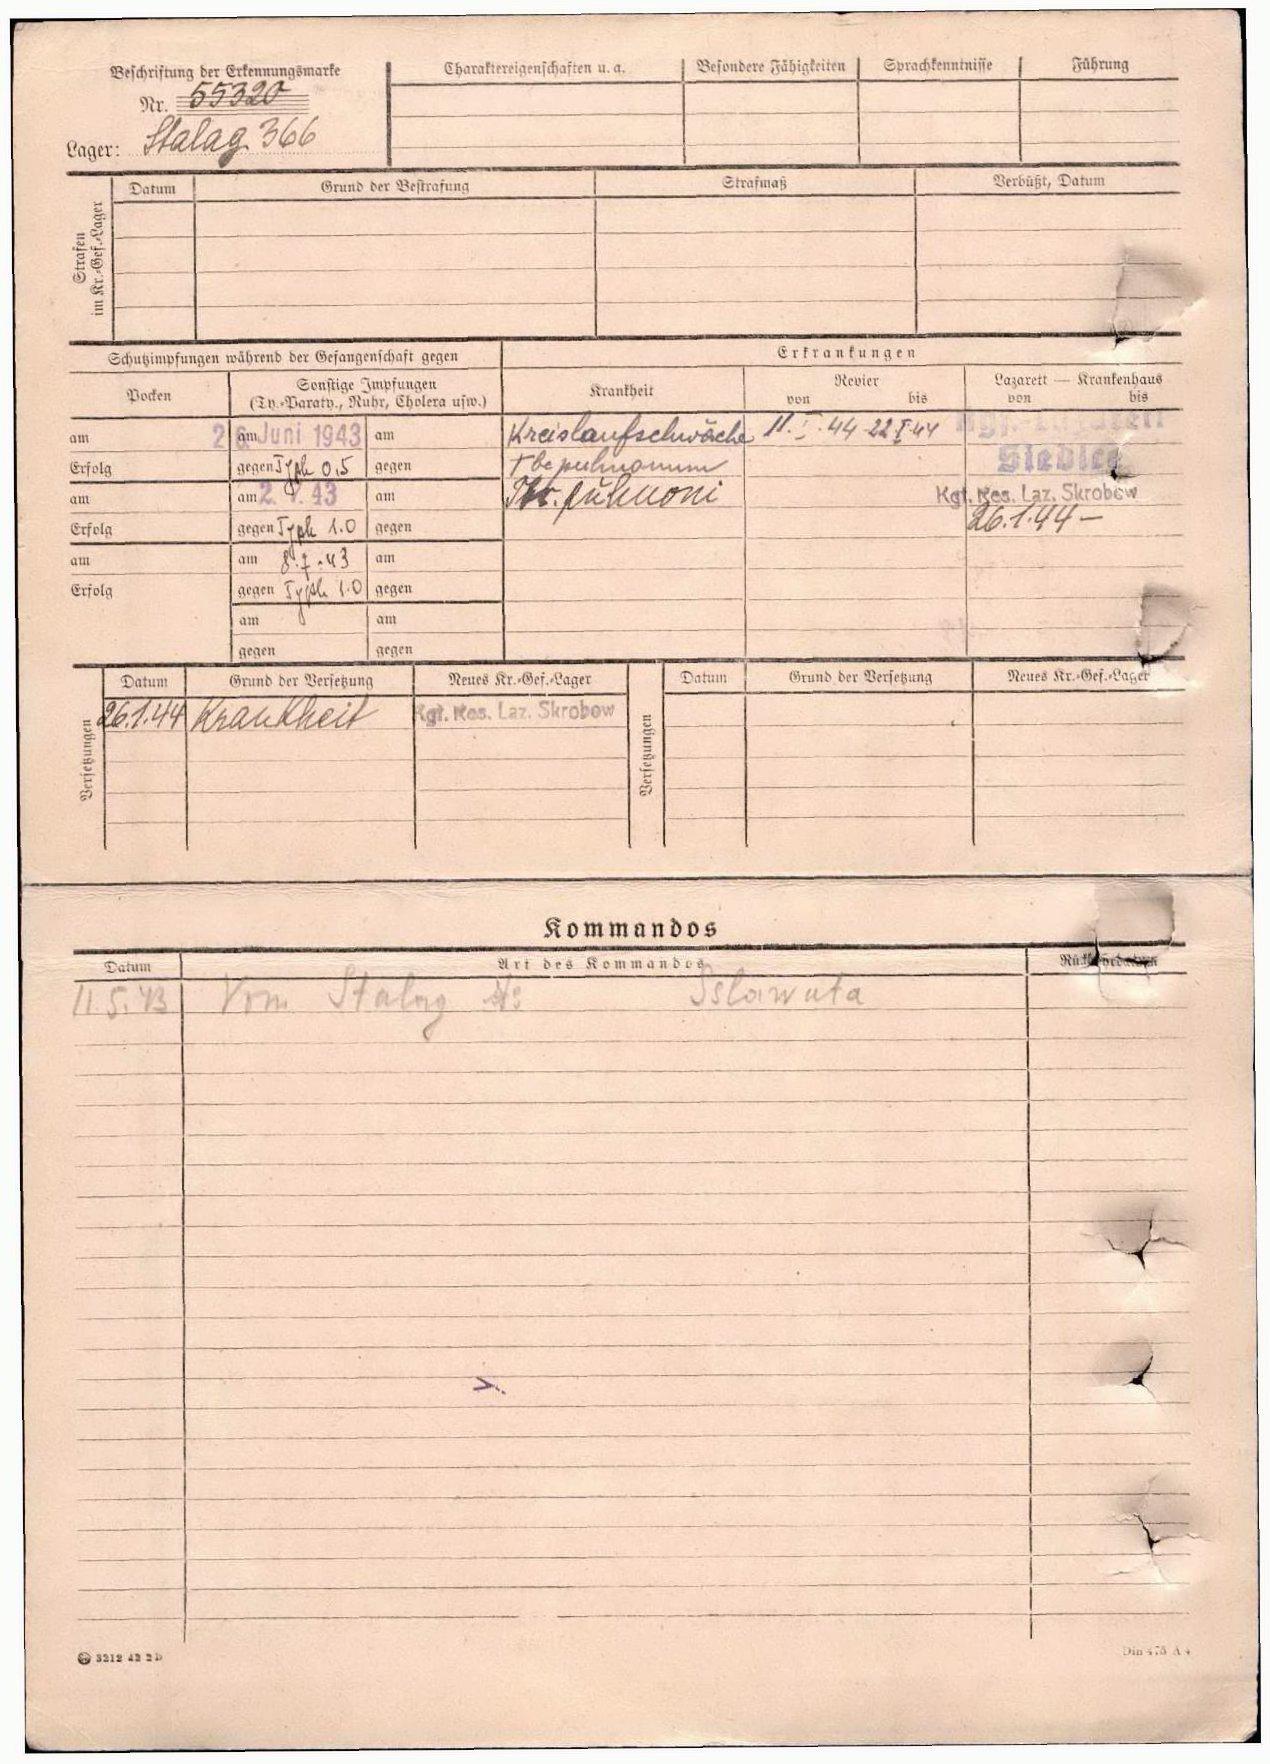 Beschriftung der Erkennungsmarke
Nr. 55320
Lager: Stalag 366
Charaktereigenschaften u. a.
Besondere Fähigkeiten
Sprachkenntnisse
Führung
Strafen im Kr.-Gef.-Lager
Datum
Grund der Bestrafung
Strafmaß
Verbüßt, Datum
Schutzimpfungen während der Gefangenschaft gegen
Erkrankungen
Pocken
Sonstige Impfungen
(Ty.-Paraty., Ruhr, Cholera usw.)
Krankheit
Revier
von bis
Lazarett — Krankenhaus
von bis
am
am 26 Juni 1943
am
Kreislaufschwäche
11. I. 44 - 22 I 44
Erfolg
gegen Typh 0,5
gegen
Tbc pulmonum
Siedlce
am
am 43
am
pulmoni
Kgf. Res. Laz. Skrobow
Erfolg
gegen Typh 1.0
gegen
26.1.44 —
am
am 8.7.43
am
Erfolg
gegen Typh 1.0
gegen
am
am
gegen
gegen
Versetzungen
Datum
Grund der Versetzung
Neues Kr.-Gef.-Lager
26.1.44
Krankheit
Kgf. Res. Laz. Skrobow
Versetzungen
Datum
Grund der Versetzung
Neues Kr.-Gef.-Lager
Kommandos
Datum
Art des Kommandos
11.5.43
Vom Stalag
3212 42 2 D
Din 476 A 4